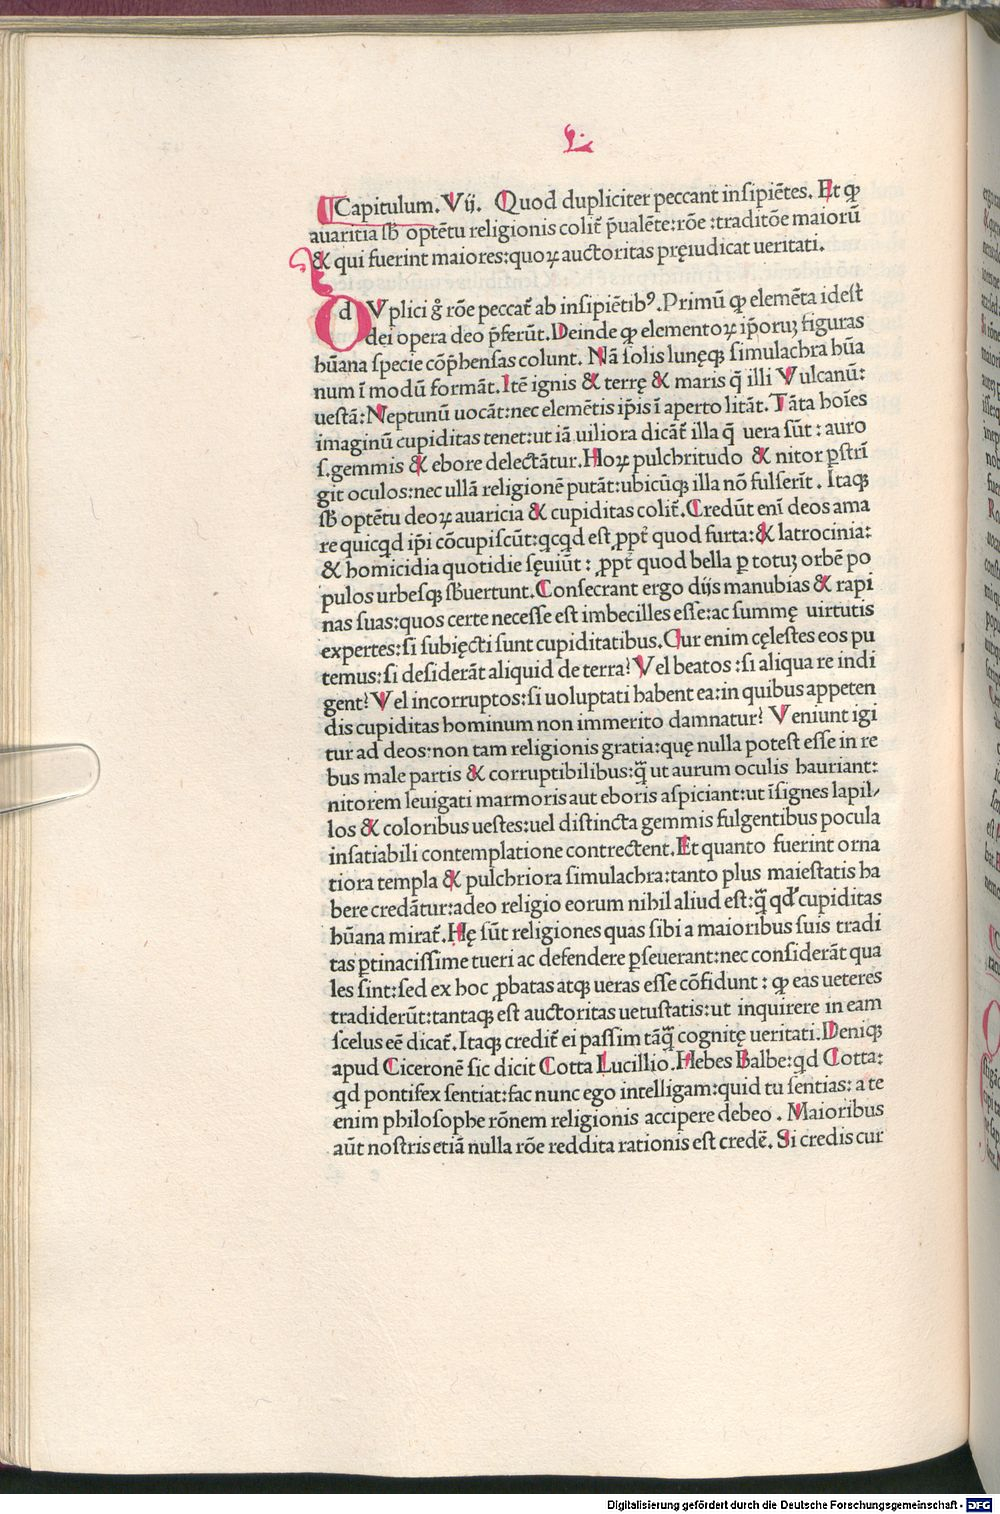 L.
Capitulum. Vij. Quod dupliciter peccant insipiẽtes. Et ꝙ
auaritia sb̃ optẽtu religionis colit᷑ p̃ualẽte:rõe:traditõe maiorũ
& qui fuerint maiores:quoꝝ auctoritas pręiudicat ueritati.
d Vplici g̊ rõe peccat᷑ ab insipiẽtib⁹. Primũ ꝙ elemẽta idest
dei opera deo p̃ferũt. Deinde ꝙ elementoꝝ ip̃oruꝫ figuras
hũana specie cõp̃hensas colunt. Nã solis lunęqꝫ simulachra hũa
num ĩ modũ formãt. Itẽ ignis & terrę & maris q̃ illi Vulcanũ:
uestã: Neptunũ uocãt:nec elemẽtis ip̃is ĩ aperto litãt. Tãta hoĩes
imaginũ cupiditas tenet:ut iã uiliora dicãt᷑ illa q̃ uera sũt: auro
s.gemmis & ebore delectãtur. Hoꝝ pulchritudo & nitor ꝑstrĩ
git oculos:nec ullã religionẽ putãt:ubicũqꝫ illa nõ fulserĩt. Itaqꝫ
sb̃ optẽtu deoꝝ auaricia & cupiditas colit᷑. Credũt enĩ deos ama
re quicqd ip̃i cõcupiscũt:qcqd est ꝓpt᷑ quod furta:& latrocinia:
& homicidia quotidie sęuiũt: ꝓpt᷑ quod bella ꝑ totuꝫ orbẽ po
pulos urbesqꝫ sb̃uertunt. Consecrant ergo dijs manubias & rapi
nas suas:quos certe necesse est imbecilles esse:ac summę uirtutis
expertes:si subięcti sunt cupiditatibus. Cur enim cęlestes eos pu
temus:si desiderãt aliquid de terra? Vel beatos:si aliqua re indi
gent? Vel incorruptos:si uoluptati habent ea:in quibus appeten
dis cupiditas hominum non immerito damnatur? Veniunt igi
tur ad deos:non tam religionis gratia:quę nulla potest esse in re
bus male partis & corruptibilibus:q̃ ut aurum oculis hauriant:
nitorem leuigati marmoris aut eboris aspiciant:ut ĩsignes lapil/
los & coloribus uestes:uel distincta gemmis fulgentibus pocula
insatiabili contemplatione contrectent. Et quanto fuerint orna
tiora templa & pulchriora simulachra:tanto plus maiestatis ha
bere credãtur:adeo religio eorum nihil aliud est:q̃ qđ cupiditas
hũana mirat᷑. Hę sũt religiones quas sibi a maioribus suis tradi
tas ꝑtinacissime tueri ac defendere ꝑseuerant:nec considerãt qua
les sint:sed ex hoc ꝓbatas atqꝫ ueras esse cõfidunt: ꝙ eas ueteres
tradiderũt:tantaqꝫ est auctoritas uetustatis:ut inquirere in eam
scelus eẽ dicat᷑. Itaqꝫ credit᷑ ei passim tãq̃ cognitę ueritati. Deniqꝫ
apud Ciceronẽ sic dicit Cotta Lucillio. Hebes Balbe:qd Cotta:
qd pontifex sentiat:fac nunc ego intelligam:quid tu sentias: a te
enim philosophe rõnem religionis accipere debeo. Maioribus
aũt nostris etiã nulla rõe reddita rationis est credẽ. Si credis cur
Digitalisierung gefördert durch die Deutsche Forschungsgemeinschaft - DFG